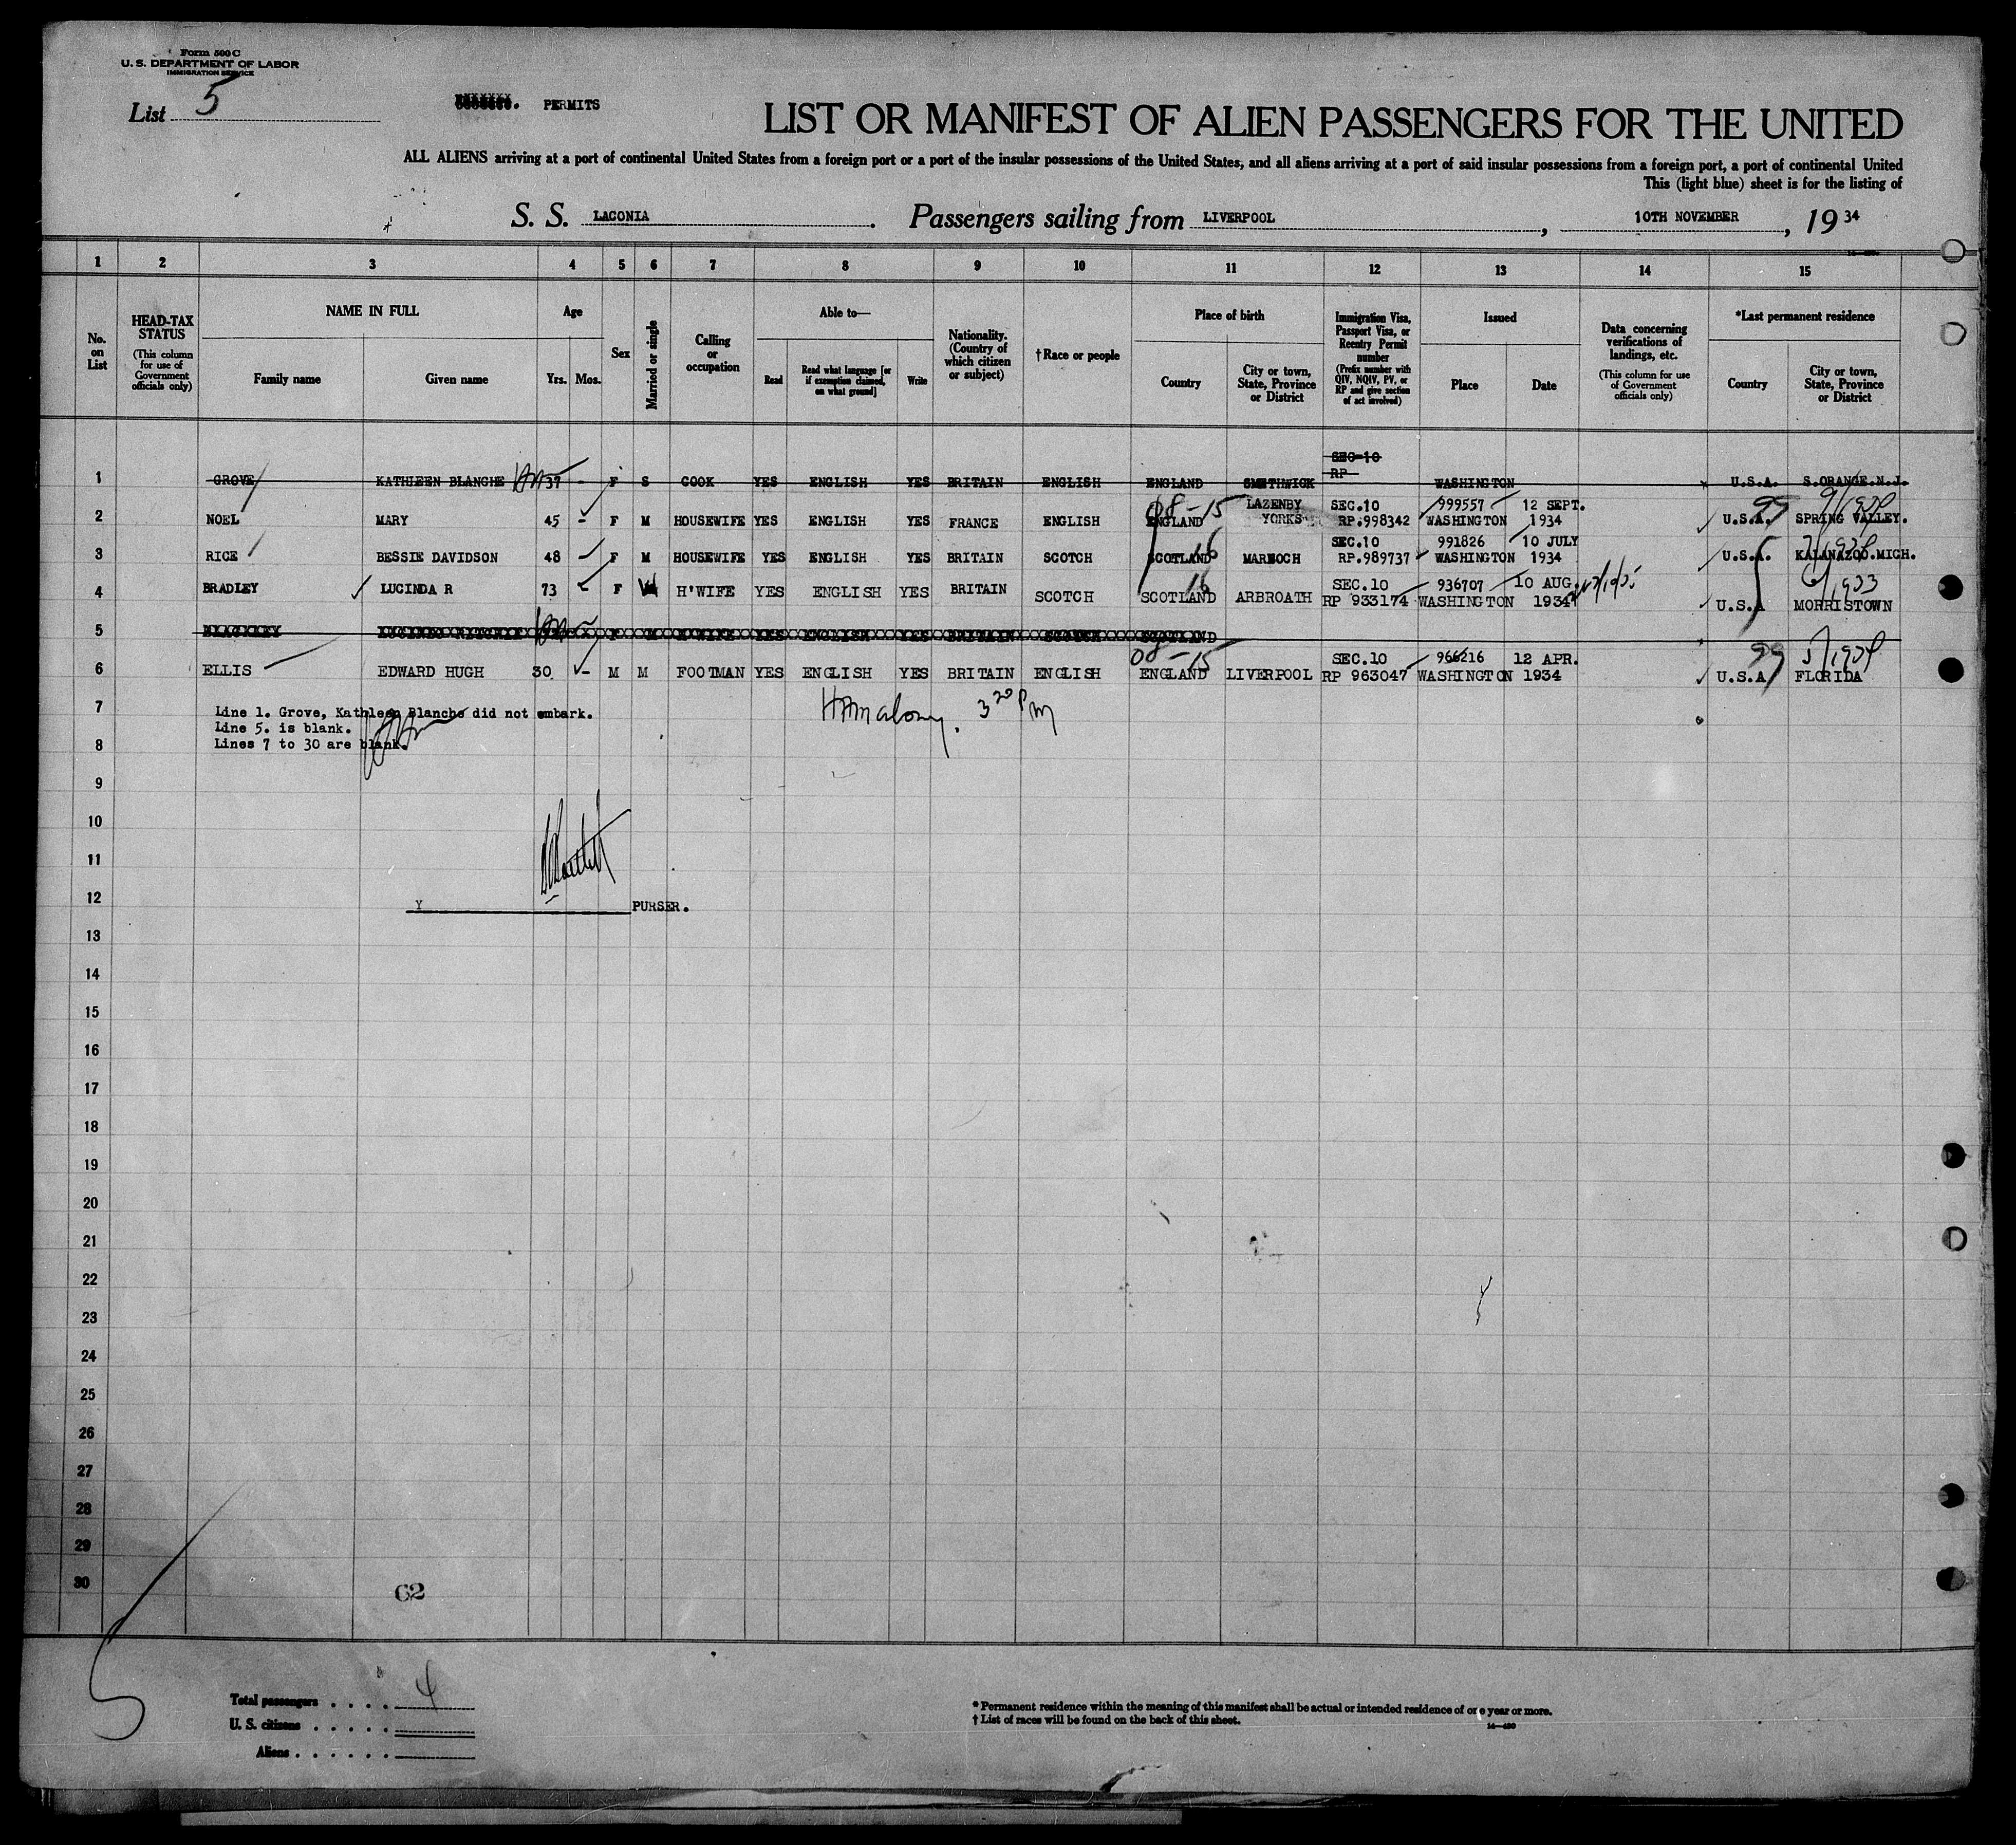 Form 500 C
U. S. DEPARTMENT OF LABOR
IMMIGRATION SERVICE
List 5
PERMITS
LIST OR MANIFEST OF ALIEN PASSENGERS FOR THE UNITED
ALL ALIENS arriving at a port of continental United States from a foreign port or a port of the insular possessions of the United States, and all aliens arriving at a port of said insular possessions from a foreign port, a port of continental United
This (light blue) sheet is for the listing of
S. S. LACONIA. Passengers sailing from LIVERPOOL, 10TH NOVEMBER, 19 34
1 2 3 4 5 6 7 8 9 10 11 12 13 14 15
No. on List
HEAD-TAX STATUS (This column for use of Government officials only)
NAME IN FULL
Family name
Given name
Age
Yrs. Mos.
Sex
Married or single
Calling or occupation
Able to—
Read
Read what language [or if exemption claimed, on what ground]
Write
Nationality. (Country of which citizen or subject)
†Race or people
Place of birth
Country
City or town, State, Province or District
Immigration Visa, Passport Visa, or Reentry Permit number (Prefix number with QIV, NQIV, PV, or RP and give section of act involved)
Issued
Place
Date
Data concerning verifications of landings, etc. (This column for use of Government officials only)
*Last permanent residence
Country
City or town, State, Province or District
SEC-10
RP
1 GROVE KATHLEEN BLANCHE 37 - F S COOK YES ENGLISH YES BRITAIN ENGLISH ENGLAND SMETHWICK WASHINGTON U.S.A. S.ORANGE.N.J.
08-15 LAZENBY SEC.10 999557 12 SEPT. 99 9/1934
2 NOEL MARY 45 - F M HOUSEWIFE YES ENGLISH YES FRANCE ENGLISH ENGLAND YORKS RP.998342 WASHINGTON 1934 U.S.A. SPRING VALLEY.
16 SEC.10 991826 10 JULY 7/1934
3 RICE BESSIE DAVIDSON 48 - F M HOUSEWIFE YES ENGLISH YES BRITAIN SCOTCH SCOTLAND MARNOCH RP.989737 WASHINGTON 1934 U.S.A. KALANAZOO.MICH.
16 SEC.10 936707 10 AUG. 6/1933
4 BRADLEY LUCINDA R 73 - F H'WIFE YES ENGLISH YES BRITAIN SCOTCH SCOTLAND ARBROATH RP 933174 WASHINGTON 1934 U.S.A MORRISTOWN
5 F M H'WIFE YES ENGLISH YES BRITAIN SCOTCH SCOTLAND
08-15 SEC.10 966216 12 APR. 99 5/1934
6 ELLIS EDWARD HUGH 30 - M M FOOTMAN YES ENGLISH YES BRITAIN ENGLISH ENGLAND LIVERPOOL RP 963047 WASHINGTON 1934 U.S.A FLORIDA
7
Line 1. Grove, Kathleen Blanche did not embark.
Line 5. is blank.
8
Lines 7 to 30 are blank.
3 20 PM
9
10
11
12
Y PURSER.
13
14
15
16
17
18
19
20
21
22
23
24
25
26
27
28
29
30
62
5
Total passengers . . . . 4
U. S. citizens . . . . .
Aliens . . . . . .
* Permanent residence within the meaning of this manifest shall be actual or intended residence of one year or more.
† List of races will be found on the back of this sheet.
14—430